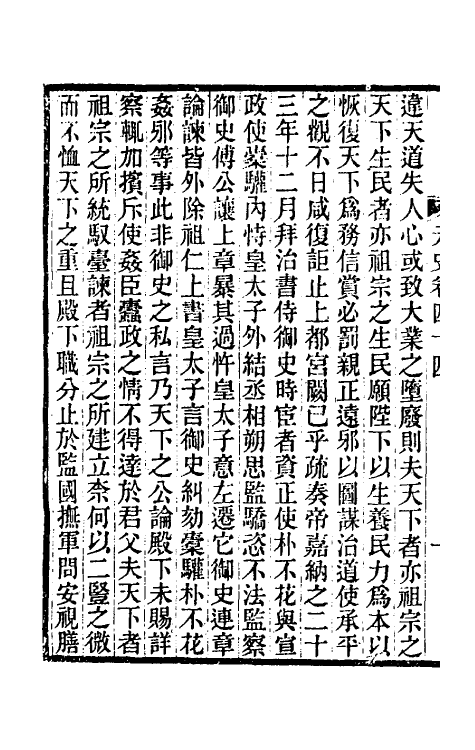 元史卷四十四
一
違天道失人心或致大業之墮廢則夫天下者亦祖宗之
天下生民者亦祖宗之生民願陛下以生養民力爲本以
恢復天下爲務信賞必罰親正遠邪以圖謀治道使承平
之觀不日咸復詎止上都宮闕已乎疏奏帝嘉納之二十
三年十二月拜治書侍御史時宦者資正使朴不花與宣
政使槖驩內恃皇太子外結丞相朔思監驕恣不法監察
御史傅公讓上章暴其過忤皇太子意左遷它御史連章
論諫皆外除祖仁上書皇太子言御史糾劾槖驩朴不花
姦邪等事此非御史之私言乃天下之公論殿下未賜詳
察輒加擯斥使姦臣蠹政之情不得達於君父夫天下者
祖宗之所統馭臺諫者祖宗之所建立柰何以二豎之微
而不恤天下之重且殿下職分止於監國撫軍問安視膳